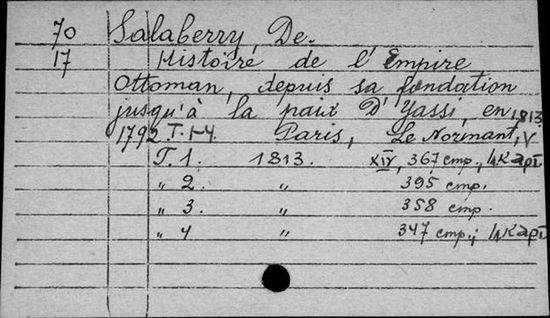 70 Salaberry, De.
17 Histoire de l'Empire
Ottoman, depuis sa fondation
jusqu'à la paix D'Yassi, en
1792. T. 1-4. Paris, Le Normant, 1813
T. 1. 1813. XIV, 367 стр., 1 карт.
" 2. " 395 стр.
" 3. " 358 стр.
" 4 " 347 стр.; 1 карт.